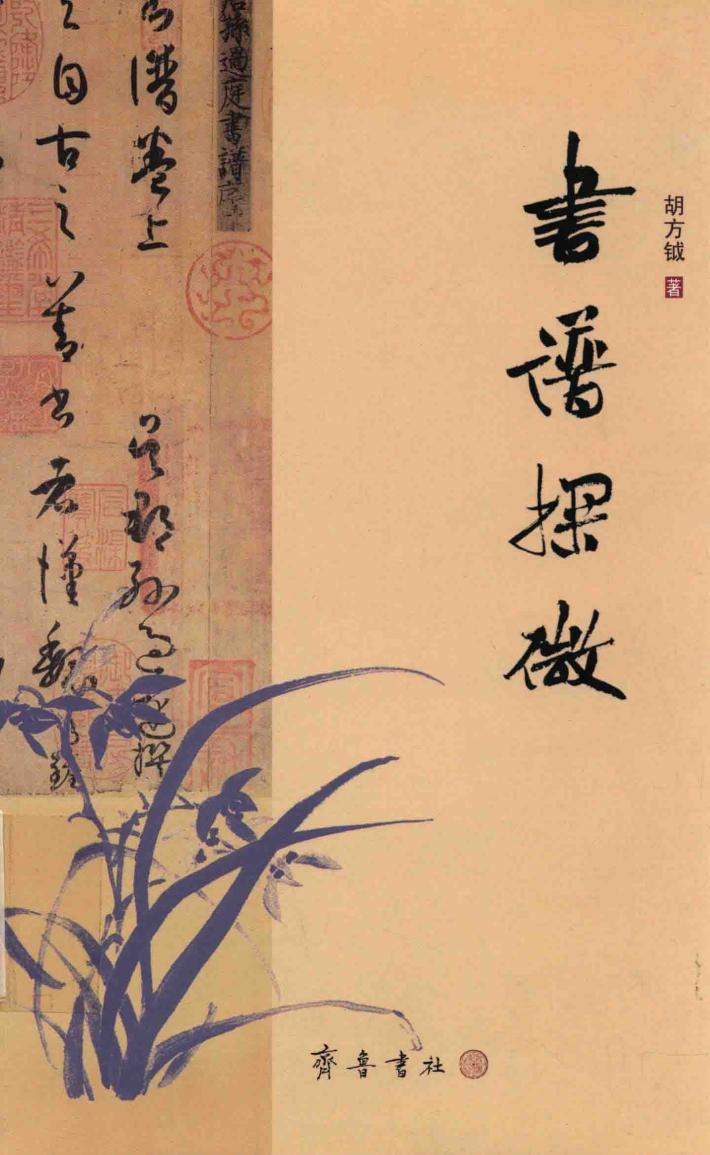 胡方钺 著
書谱探微
孫過庭書譜序
譜卷上 吳郡孫過庭撰
自古之善書者漢魏有鍾
齊魯書社